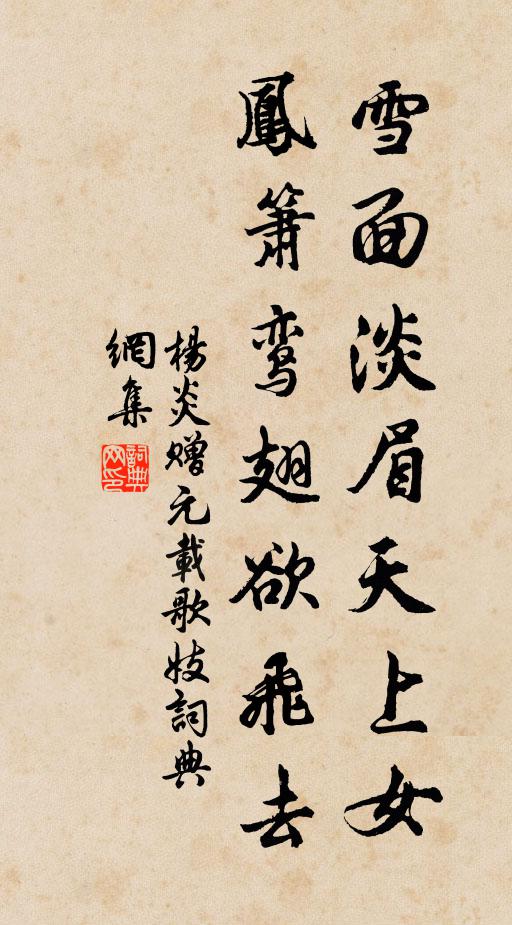 雪面淡眉天上女
鳳簫鸾翅欲飛去
楊炎赠元載歌妓詞典
網集
詞典网印